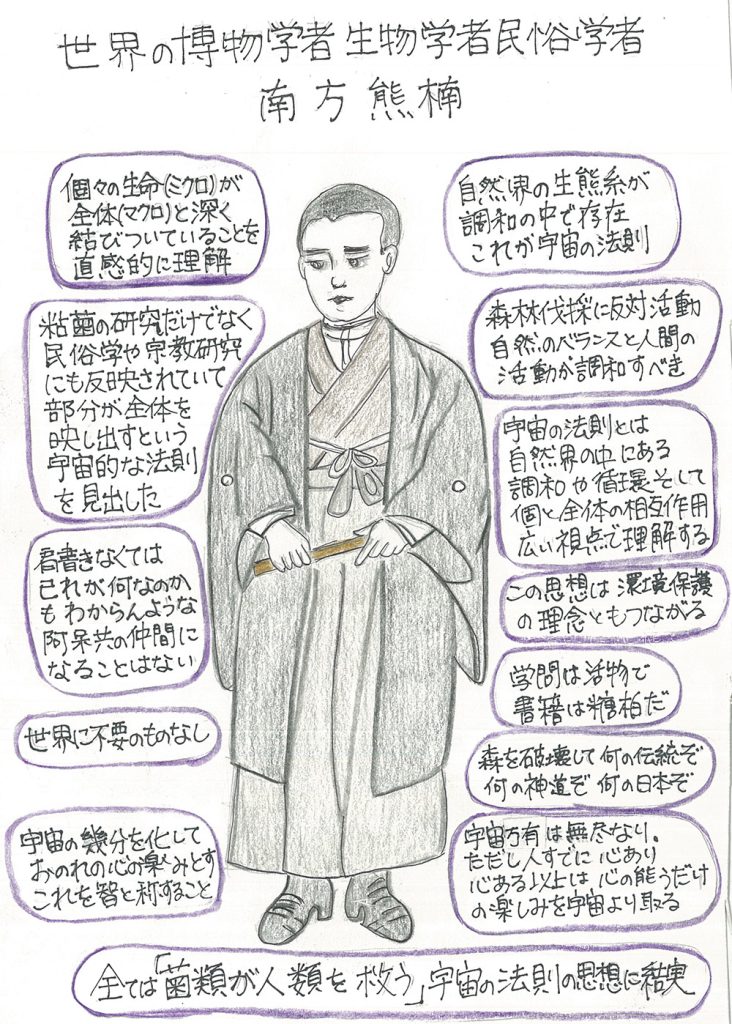 世界の博物学者生物学者民俗学者
南方熊楠
個々の生命(ミクロ)が
全体(マクロ)と深く
結びついていることを
直感的に理解
粘菌の研究だけでなく
民俗学や宗教研究
にも反映されていて
部分が全体を
映し出すという
宇宙的な法則
を見出した
君書きなくては
己れが何なのか
もわからんような
阿呆共の仲間に
なることはない
世界に不要のものなし
宇宙の幾分を化して
おのれの心の楽みとす
これを智と称すること
自然界の生熊系が
調和の中で存在
これが宇宙の法則
森林伐採に反対活動
自然のバランスと人間の
活動が調和すべき
宇宙の法則とは
自然界の中にある
調和や循環そして
個と全体の相互作用
広い視点で理解する
この思想は環境保護
の理念ともつながる
学問は活物で
書籍は糟粕だ
森を破壊して何の伝統ぞ
何の神道ぞ何の日本ぞ
宇宙万有は無尽なり。
ただし人すでに心あり
心ある以上は心の能うだけ
の楽しみを宇宙より取る
全ては「菌類が人類を救う」宇宙の法則の思想に結実